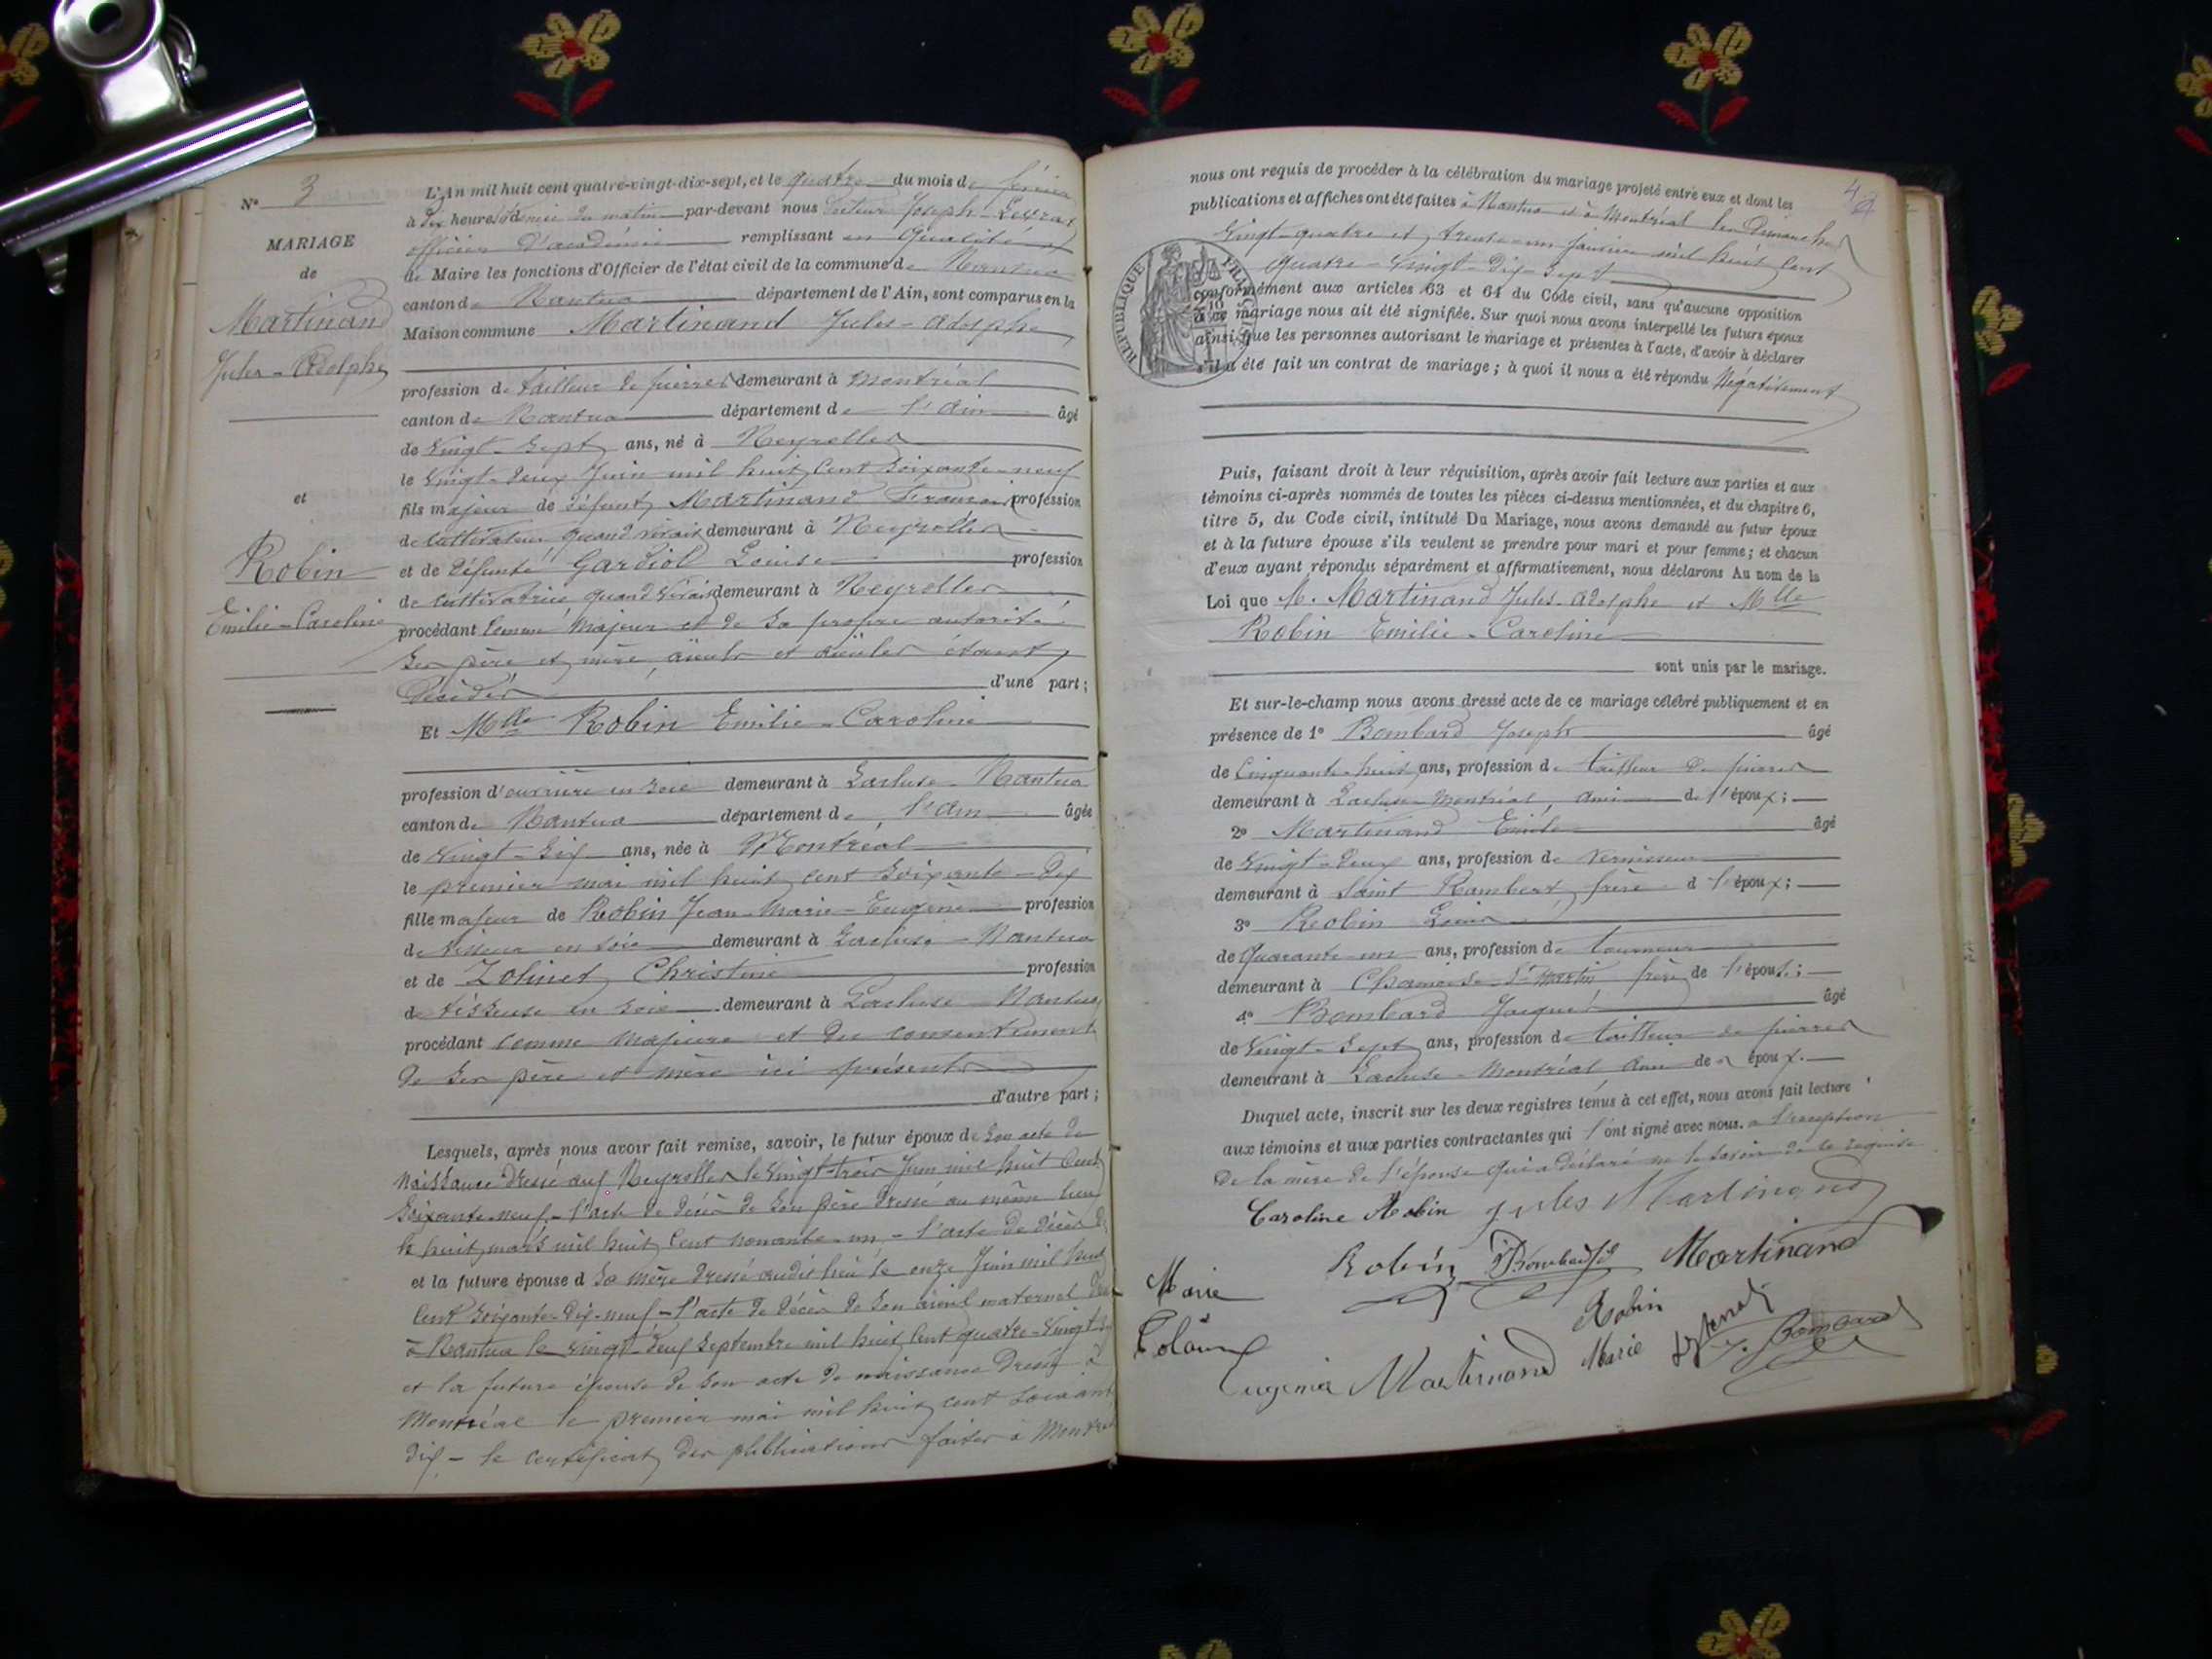 N° 3
MARIAGE
de
Martinand
Jules-Adolphe
et
Robin
Emilie-Caroline
L'An mil huit cent quatre-vingt-dix-sept, et le quatre du mois de février
à dix heures & demie du matin par-devant nous Docteur Joseph
officier d'académie remplissant en qualité
de Maire les fonctions d'Officier de l'état civil de la commune de Nantua
canton de Nantua département de l'Ain, sont comparus en la
Maison commune Martinand Jules-Adolphe
profession de tailleur de pierres demeurant à Montréal
canton de Nantua département de l'Ain âgé
de Vingt-Sept ans, né à Neyrolles
le Vingt-deux Juin mil huit cent soixante-neuf
fils majeur de défunt Martinand François profession
de cultivateur quand vivait demeurant à Neyrolles
et de défunte Gardiol Louise profession
de cultivatrice quand vivait demeurant à Neyrolles
procédant comme majeur et de sa propre autorité
ses père et mère, aïeuls et aïeules étant
décédés d'une part;
Et Mlle Robin Emilie-Caroline
profession d'ouvrière en soie demeurant à Lacluse-Nantua
canton de Nantua département de l'Ain âgée
de Vingt-Six ans, née à Montréal
le premier mai mil huit cent soixante-dix
fille majeur de Robin Jean-Marie-Eugène profession
de tisseur en soie demeurant à Lacluse-Nantua
et de Zolinet Christine profession
de tisseuse en soie demeurant à Lacluse-Nantua
procédant comme majeure et du consentement
de ses père et mère ici présents
d'autre part;
Lesquels, après nous avoir fait remise, savoir, le futur époux de son acte de
naissance dressé aux Neyrolles le vingt-trois Juin mil huit cent
soixante-neuf - l'acte de décès de son père dressé au même lieu
le huit mars mil huit cent nonante-un - l'acte de décès de
et la future épouse d sa mère dressé audit lieu le onze Juin mil huit
cent soixante-dix-neuf - l'acte de décès de son aïeul maternel
à Nantua le vingt-deux Septembre mil huit cent quatre-vingt
et la future épouse de son acte de naissance dressé à
Montréal le premier mai mil huit cent soixante
dix - le certificat des publications faites à Montréal
4
nous ont requis de procéder à la célébration du mariage projeté entre eux et dont les
publications et affiches ont été faites à Nantua et à Montréal les Dimanches
Vingt-quatre et trente-un janvier mil huit cent
quatre-Vingt-Dix-Sept
RÉPUBLIQUE FRANÇAISE
conformément aux articles 63 et 64 du Code civil, sans qu'aucune opposition
à ce mariage nous ait été signifiée. Sur quoi nous avons interpellé les futurs époux
ainsi que les personnes autorisant le mariage et présentes à l'acte, d'avoir à déclarer
s'il a été fait un contrat de mariage; à quoi il nous a été répondu Négativement
Puis, faisant droit à leur réquisition, après avoir fait lecture aux parties et aux
témoins ci-après nommés de toutes les pièces ci-dessus mentionnées, et du chapitre 6,
titre 5, du Code civil, intitulé Du Mariage, nous avons demandé au futur époux
et à la future épouse s'ils veulent se prendre pour mari et pour femme; et chacun
d'eux ayant répondu séparément et affirmativement, nous déclarons Au nom de la
Loi que M. Martinand Jules-Adolphe et Mlle
Robin Emilie-Caroline
sont unis par le mariage.
Et sur-le-champ nous avons dressé acte de ce mariage célébré publiquement et en
présence de 1° Bombard Joseph âgé
de Cinquante-huit ans, profession de tailleur de pierres
demeurant à Lacluse-Montréal, ami de l'époux;
2° Martinand Emile âgé
de Vingt-deux ans, profession de vernisseur
demeurant à Saint Rambert, frère d l'époux;
3° Robin Louis
de quarante-un ans, profession de tourneur
demeurant à St Martin frère de l'épouse;
4° Bombard Jacques âgé
de Vingt-Sept ans, profession de tailleur de pierres
demeurant à Lacluse-Montréal Ami de époux.
Duquel acte, inscrit sur les deux registres tenus à cet effet, nous avons fait lecture
aux témoins et aux parties contractantes qui l'ont signé avec nous. à l'exception
de la mère de l'épouse qui a déclaré ne le savoir de ce requise
Caroline Robin Jules Martinand
Robin Bombard Martinand
Marie
Robin
Eugenie Martinand Marie J. Bombard